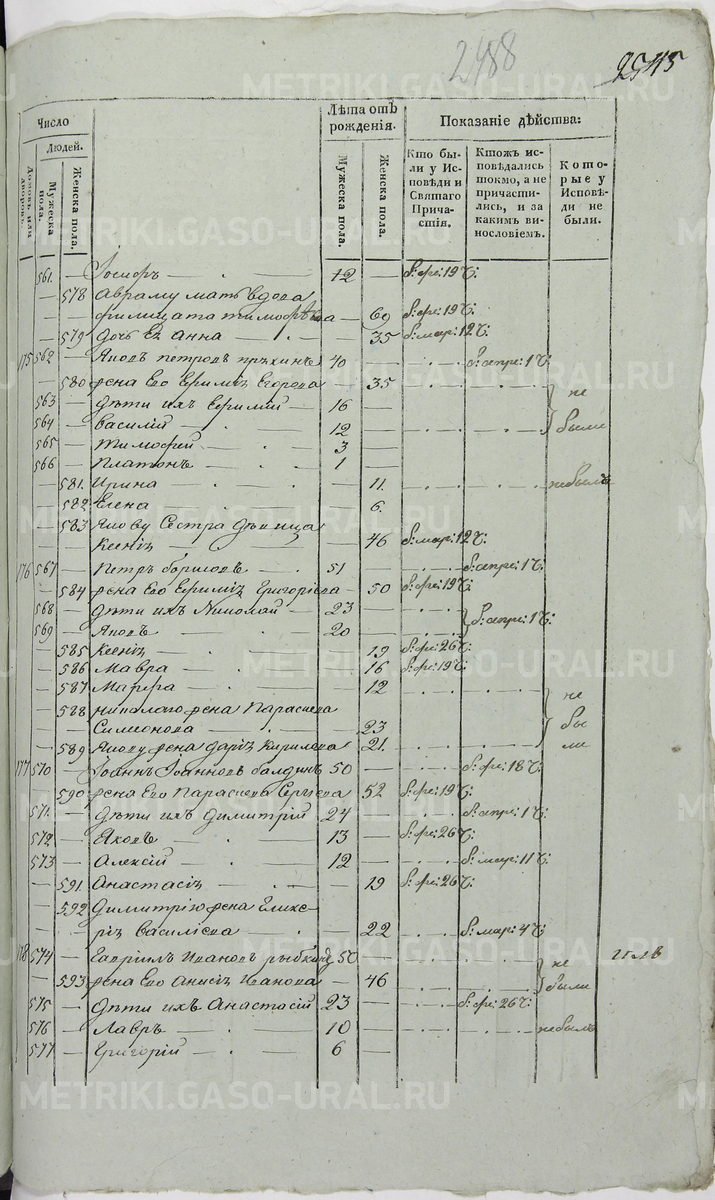 2488
2545
Число
Людей.
Домовъ или дворовъ.
Мужеска пола.
Женска пола.
Лѣта отъ рожденія.
Мужеска пола.
Женска пола.
Показаніе дѣйства:
Кто были у Исповѣди и Святаго Причастія.
Ктожъ исповѣдались токмо, а не причастились, и за какимъ винословіемъ.
Которые у Исповѣди не были.
561. — Іосифъ — 12 — б: фе: 19 ч:
— 578 Авраму мать вдова
филицата тимофѣева — 69 б: фе: 19 ч:
— 579 дочь Ея Анна — 35 б: мар: 12 ч:
175 562 — Яковъ петровъ 40 — б: апре: 1 ч:
— 580 жена Его Егорова 35
563 — дѣти ихъ 16 — не
564 — Василій — 12 — были
565 — Тимофей — 3 —
566 — Платонъ — 1 —
— 581. Ирина — 11. небылъ
— 582 Елена 6.
— 583 Якову Сестра дѣвица
Ксенія — 46 б: мар: 12 ч:
176 567 — Петръ 51 — б: апре: 1 ч:
— 584 жена Его Григоріева — 50 б: фе: 19 ч:
568 — дѣти ихъ Николай — 23 — б: апре: 1 ч:
569 — Яковъ — 20 —
— 585 Ксенія — 19 б: фе: 26 ч:
— 586 Мавра — 16 б: фе: 19 ч:
— 587 Марфа — 12
— 588 николаю жена Параскева не
Симеонова — 23 бы
— 589 Якову жена дарія Кирилова 21. ли
177 570 — Іоаннъ Іоанновъ балдинъ 50 — б: фе: 18 ч:
— 590 жена Его Параскева 52 б: фе: 19 ч:
571. — дѣти ихъ Димитрій 24 — б: апре: 1 ч:
572 — Яковъ — 13 — б: фе: 26 ч:
573 — Алексій — 12 — б: мар: 11 ч:
— 591. Анастасія — 19 б: фе: 26 ч:
— 592 Димитрію жена Глике-
рія Василіева — 22 б: мар: 4 ч:
178 574 — Гаврилъ Ивановъ 50 — не
— 593 жена Его Анисія Иванова — 46 были
575 — дѣти ихъ Анастасій 23 — б: фе: 26 ч:
576 — Лавръ — 10 — небылъ
577 — Григорій — 6 —
METRIKI.GASO-URAL.RU